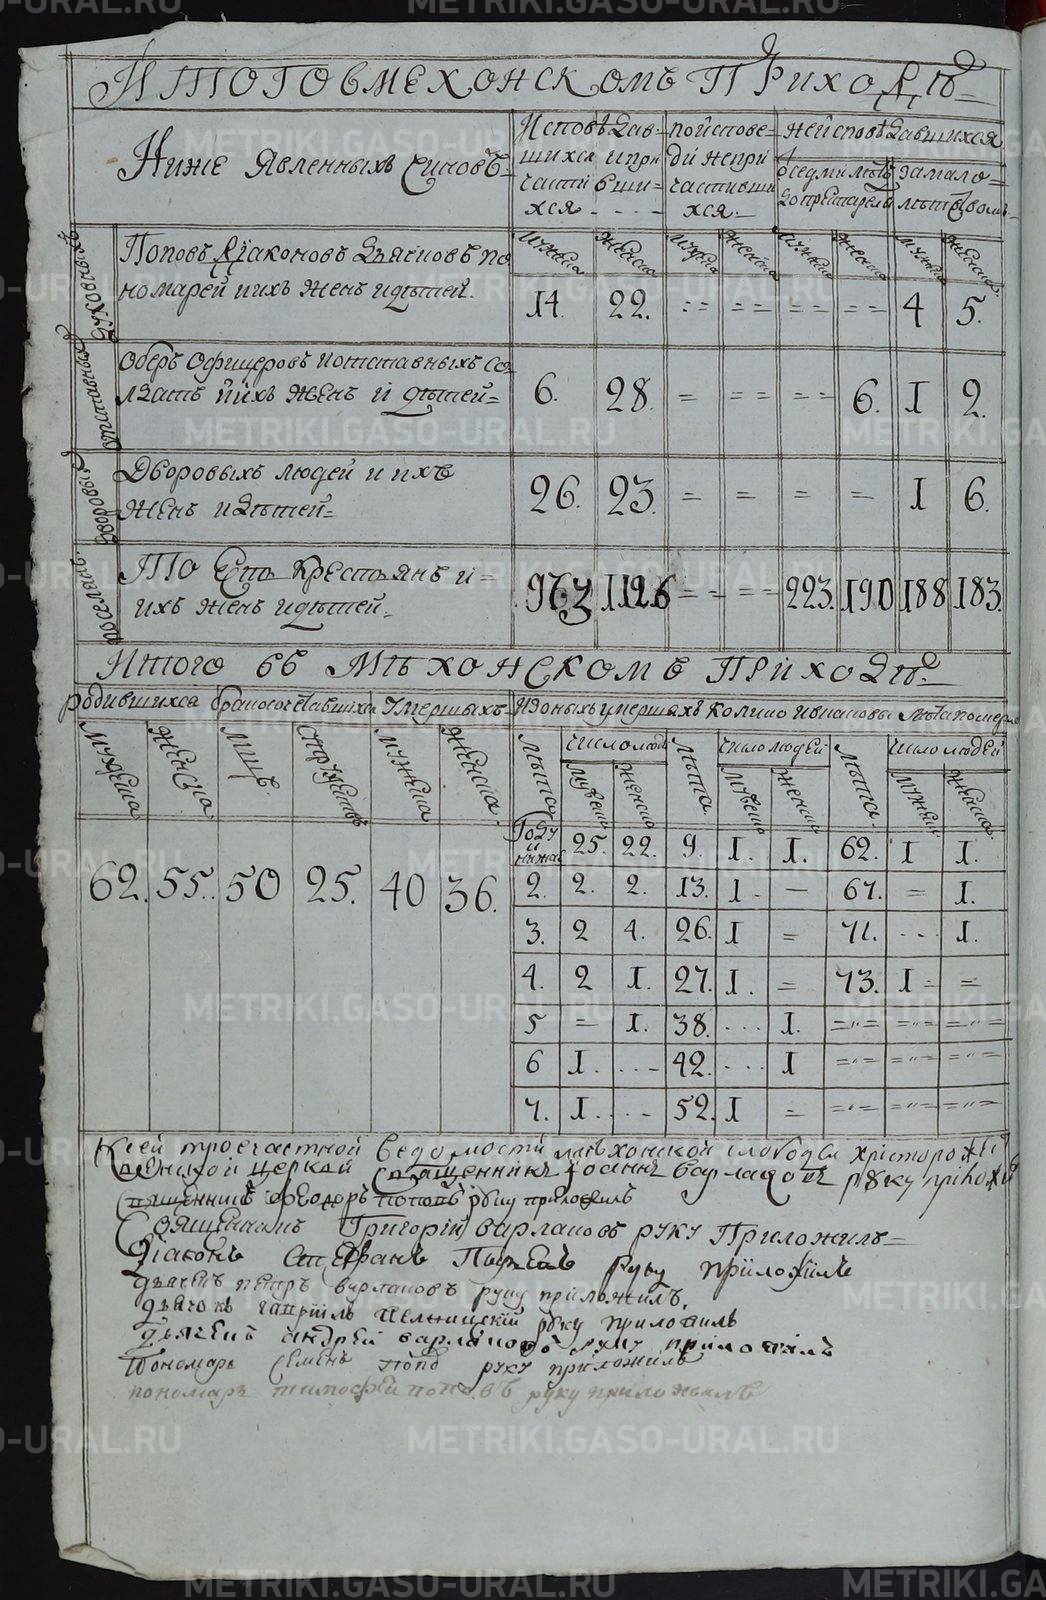 Итого в Мехонскомъ приходѣ
Ниже явленныхъ чиновъ
Исповѣдав-
шихся и при
части вши-
хся
по испове-
ди непри
частивши
хся
неисповѣдавшихся
замало-
лѣтством
мужеска женска мужеска женска мужеска женска мужеска женска
духовныхъ
Поповъ діаконовъ дьячковъ по
номарей и ихъ женъ идѣтей.
14. 22. := == == == 4 5.
отставныхъ
оберъ офицеровъ иотставныхъ со
лдатъ и ихъ женъ и дѣтей=
6. 28. = == == 6. I 2.
дворовыхъ
Дворовыхъ людей и ихъ
женъ идѣтей=
26. 23. = = = = I 6.
То Есть крестьянъ и=
ихъ женъ идѣтей.
963 1126 == == 223. 190 188 183.
Итого въ Мѣхонскомъ приходѣ.
родившихся бракосочетавшихся Умершыхъ
мужеска женска лицъ. супружествъ мужеска женска.
лѣта число людей лѣта. число людей лѣта. число людей
мужеска женска мужеска женска мужеска женска.
62. 55. 50 25. 40 36.
Году
и
нижае 25. 22. 9. I. I. 62. I I.
2. 2. 2. 13. I - — 67. = I.
3. 2 4. 26. I = 71. ... I.
4. 2 I. 27. I. = 73. I - =
5 = I. 38. ... I. =„= =„= =„=
6 I. ... 42. ... I =„= =„= =„=
7. I. ... 52. I = =„= =„= =„=
Ксей троечастной ведомости мѣхонской слободы христорож
церкви Священникъ Іоаннъ варлаковъ руку
Священникъ Ѳеодоръ поповъ руку приложилъ
Священникъ Григорій варлаковъ руку приложилъ=
Діаконъ Стефанъ руку приложилъ
дьячекъ петръ варлаковъ руку приложилъ.
дьячокъ гавріилъ руку приложилъ
дьячекъ андрей варлаковъ руку приложилъ
Пономарь Семенъ попо руку приложилъ
пономарь тимофей поповъ руку приложилъ
METRIKI.GASO-URAL.RU